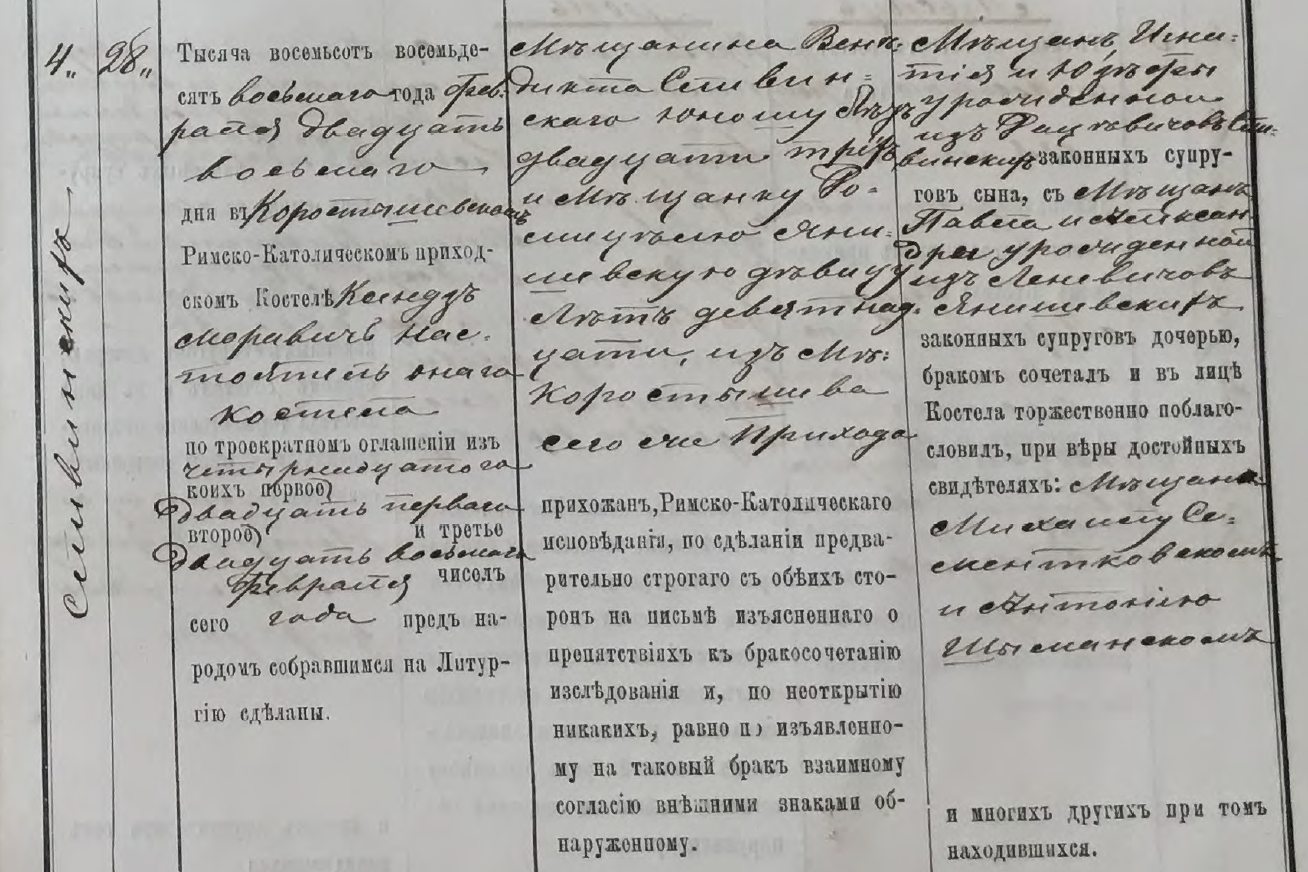 4„
28„
Сливинскихъ
Тысяча восемьсотъ восемьде-
сятъ восьмаго года Фев-
раля двадцать
восьмаго
дня въ Коростышевскомъ
Римско-Католическомъ приход-
скомъ Костелѣ Ксендзъ
Моравичъ Нас-
тоятель онаго
костела
по троекратномъ оглашеніи изъ
четырнадцатаго
коихъ первое)
Двадцать перваго
второе) и третье
Двадцать восьмаго
Февраля чиселъ
сего года предъ на-
родомъ собравшимся на Литур-
гію сдѣланы.
Мѣщанина Вене-
дикта Сливин-
скаго юношу лѣтъ
двадцати трехъ
и Мѣщанку Фе-
лицѣлю Яни-
шевскую дѣвицу
лѣтъ девятнад-
цати, изъ Мѣ:
Коростышева
сего же Прихода
прихожанъ, Римско-Католическаго
исповѣданія, по сдѣланіи предва-
рительно строгаго съ обѣихъ сто-
ронъ на письмѣ изъясненнаго о
препятствіяхъ къ бракосочетанію
изслѣдованія и, по неоткрытію
никакихъ, равно по изъявленно-
му на таковый бракъ взаимному
согласію внѣшними знаками об-
наруженному.
Мѣщанъ, Игна-
тія и Юзѣфы
урожденной
изъ Фацѣвичовъ Сли-
винскихъ законныхъ супру-
говъ сына, съ Мѣщанъ
Павла и Алексан-
дры урожденной
изъ Леневичовъ
Янишевскихъ
законныхъ супруговъ дочерью,
бракомъ сочеталъ и въ лицѣ
Костела торжественно поблаго-
словилъ, при вѣры достойныхъ
свидѣтеляхъ: Мѣщанѣ
Михаилу Се-
ментковскомъ
и Антонію
Шыманскомъ
и многихъ другихъ при томъ
находившихся.